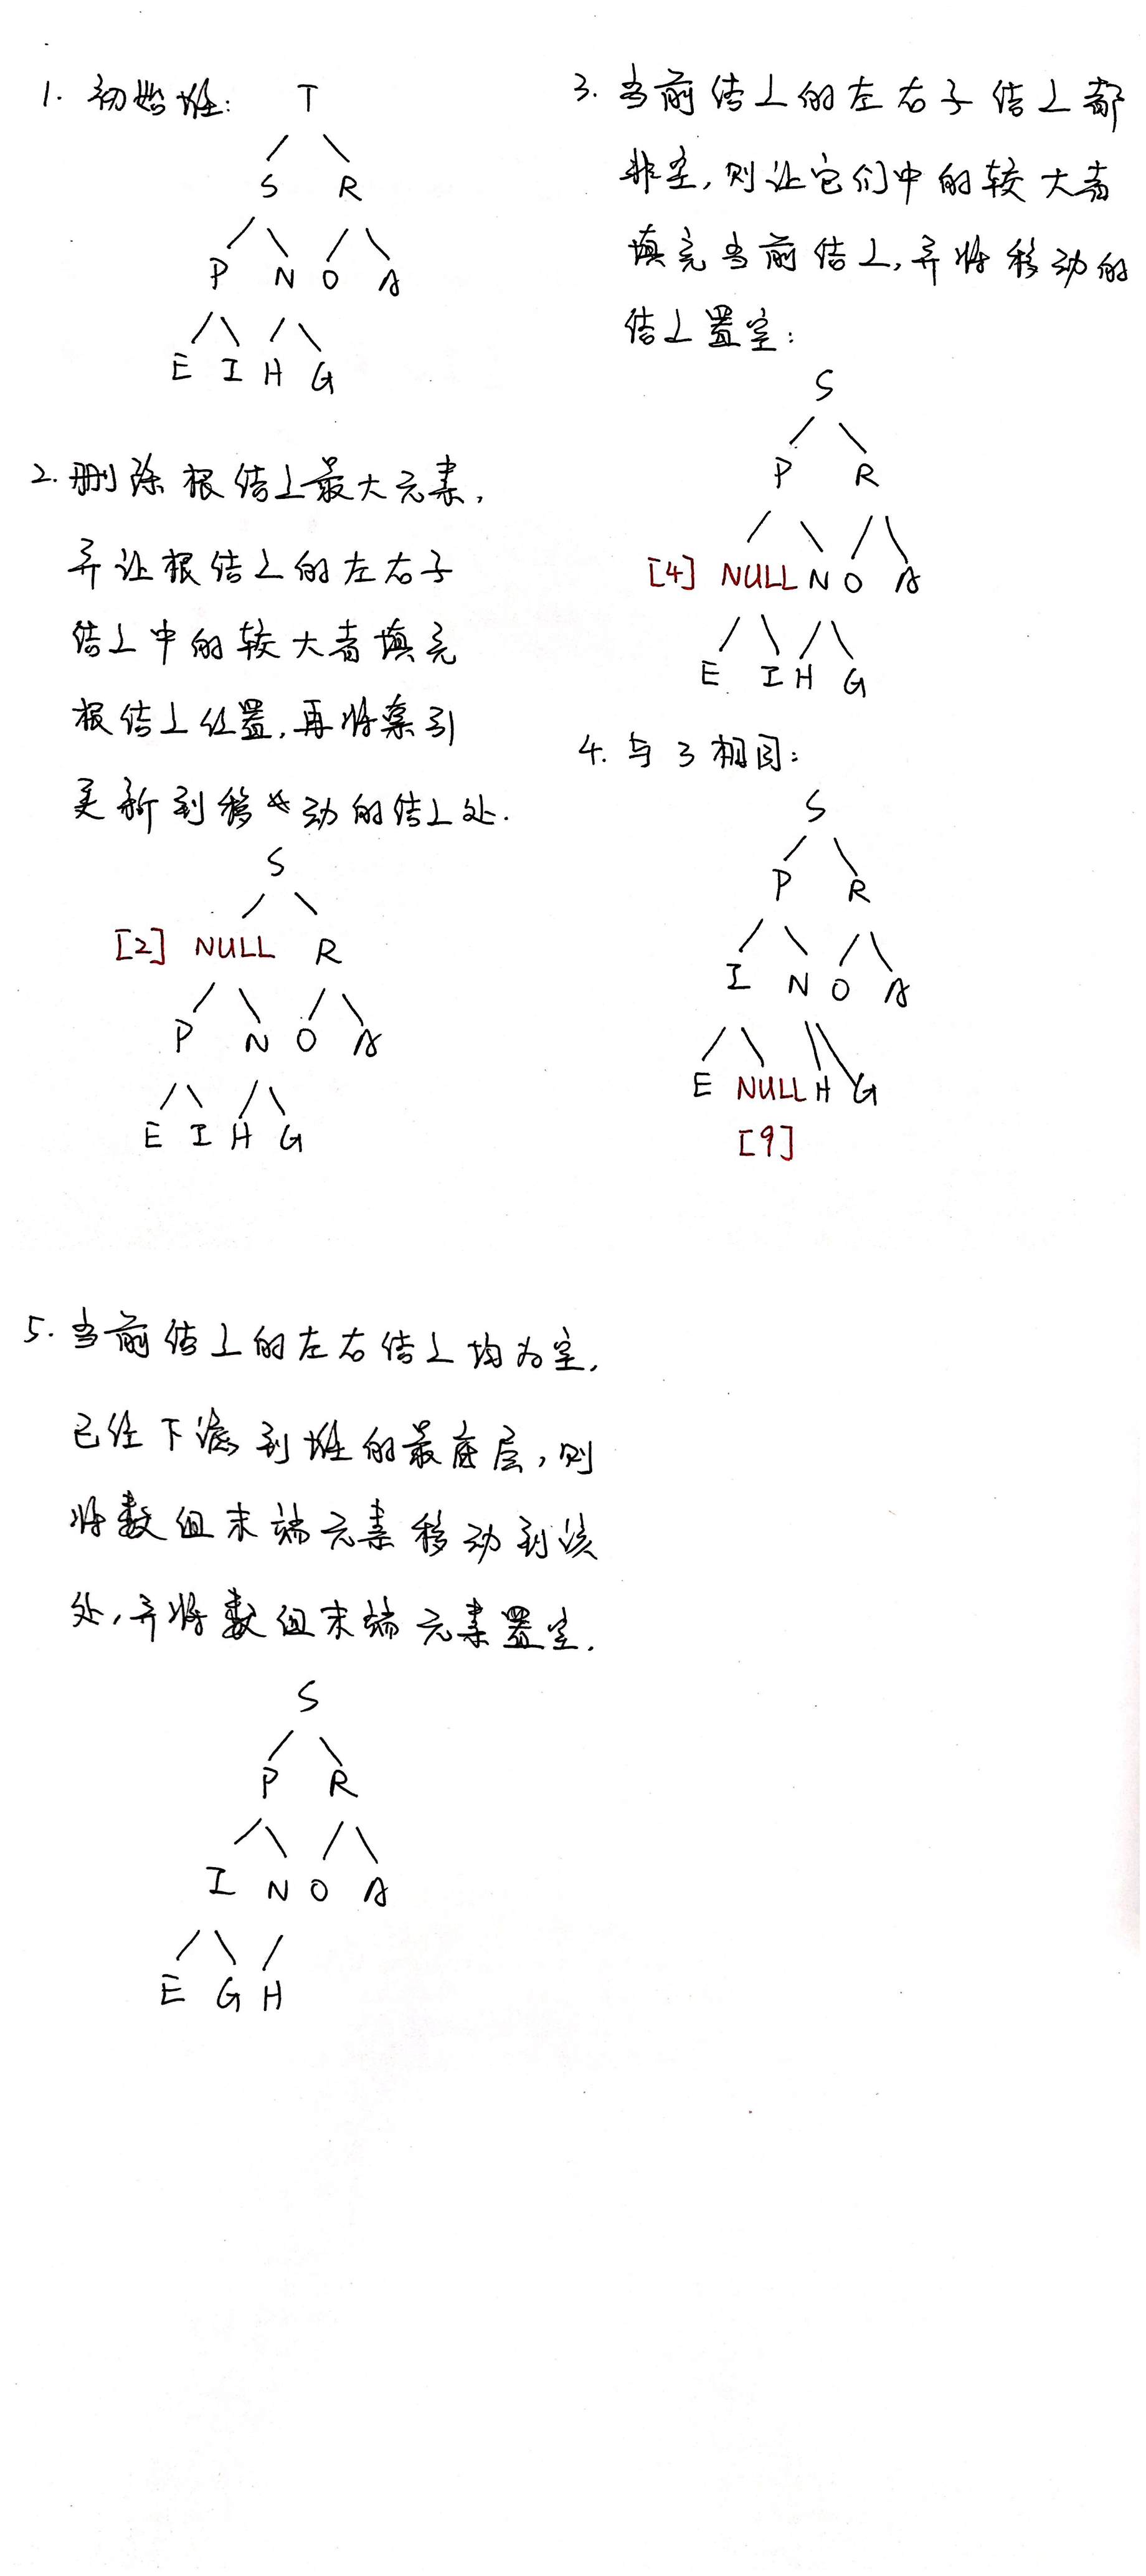 1. 初始堆:
T
S R
P N O A
E I H G
2. 删除根结上最大元素,
并让根结上的左右子
结上中的较大者填充
根结上位置,再将索引
更新到移动的结上处.
S
[2] NULL R
P N O A
E I H G
3. 当前结上的左右子结上都
非空,则让它们中的较大者
填充当前结上,并将移动的
结上置空:
S
P R
[4] NULL N O A
E I H G
4. 与3相同:
S
P R
I N O A
E NULL H G
[9]
5. 当前结上的左右结上均为空,
已经下滤到堆的最底层,则
将数组末端元素移动到该
处,并将数组末端元素置空.
S
P R
I N O A
E G H